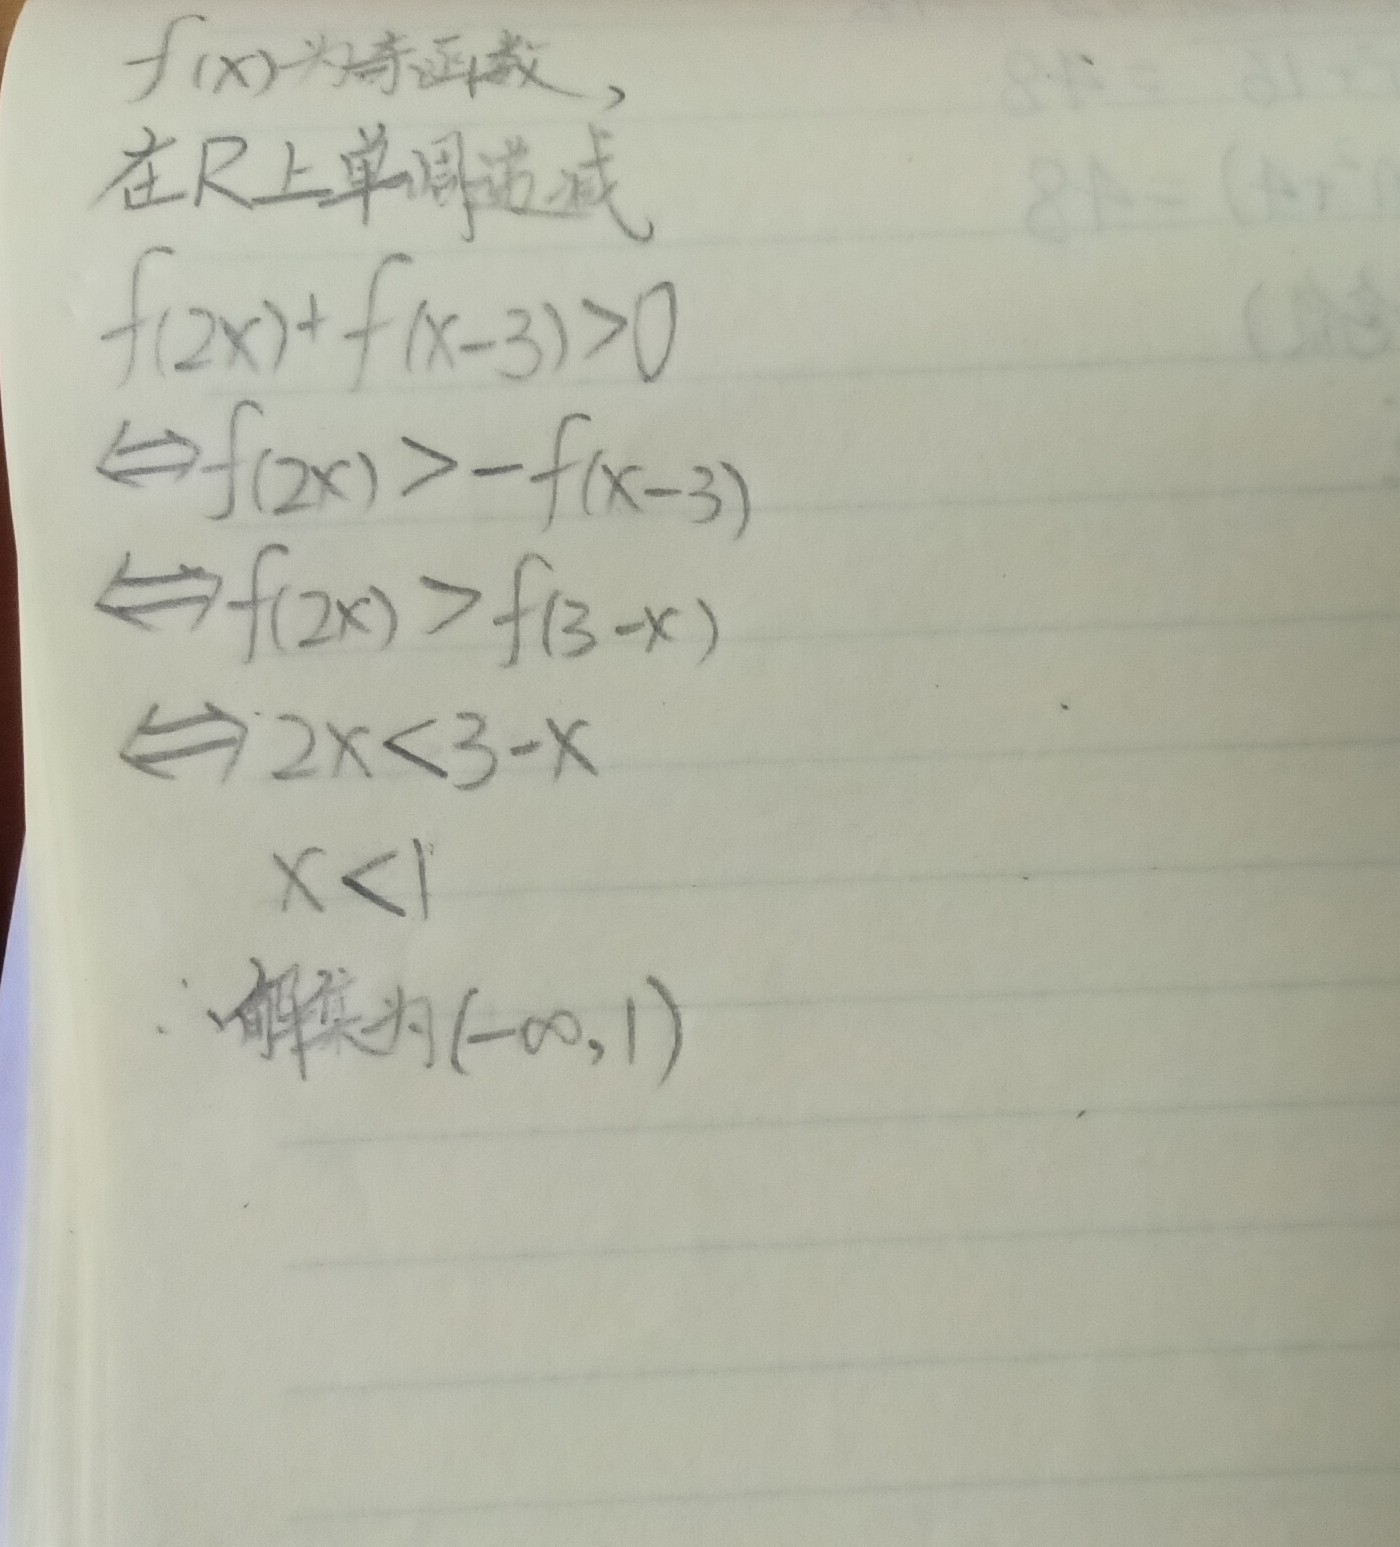 f(x)为奇函数,
在R上单调递减,
f(2x)+f(x-3)>0
⇔f(2x)>-f(x-3)
⇔f(2x)>f(3-x)
⇔2x<3-x
x<1
∴解集为(-∞,1)